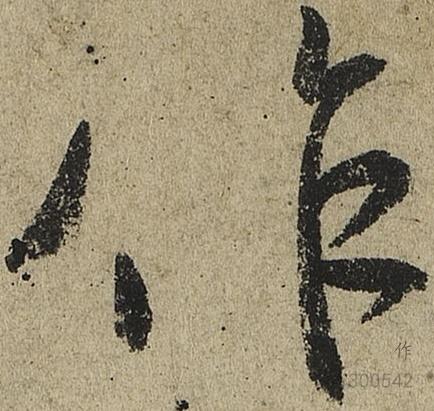 作
作
300542